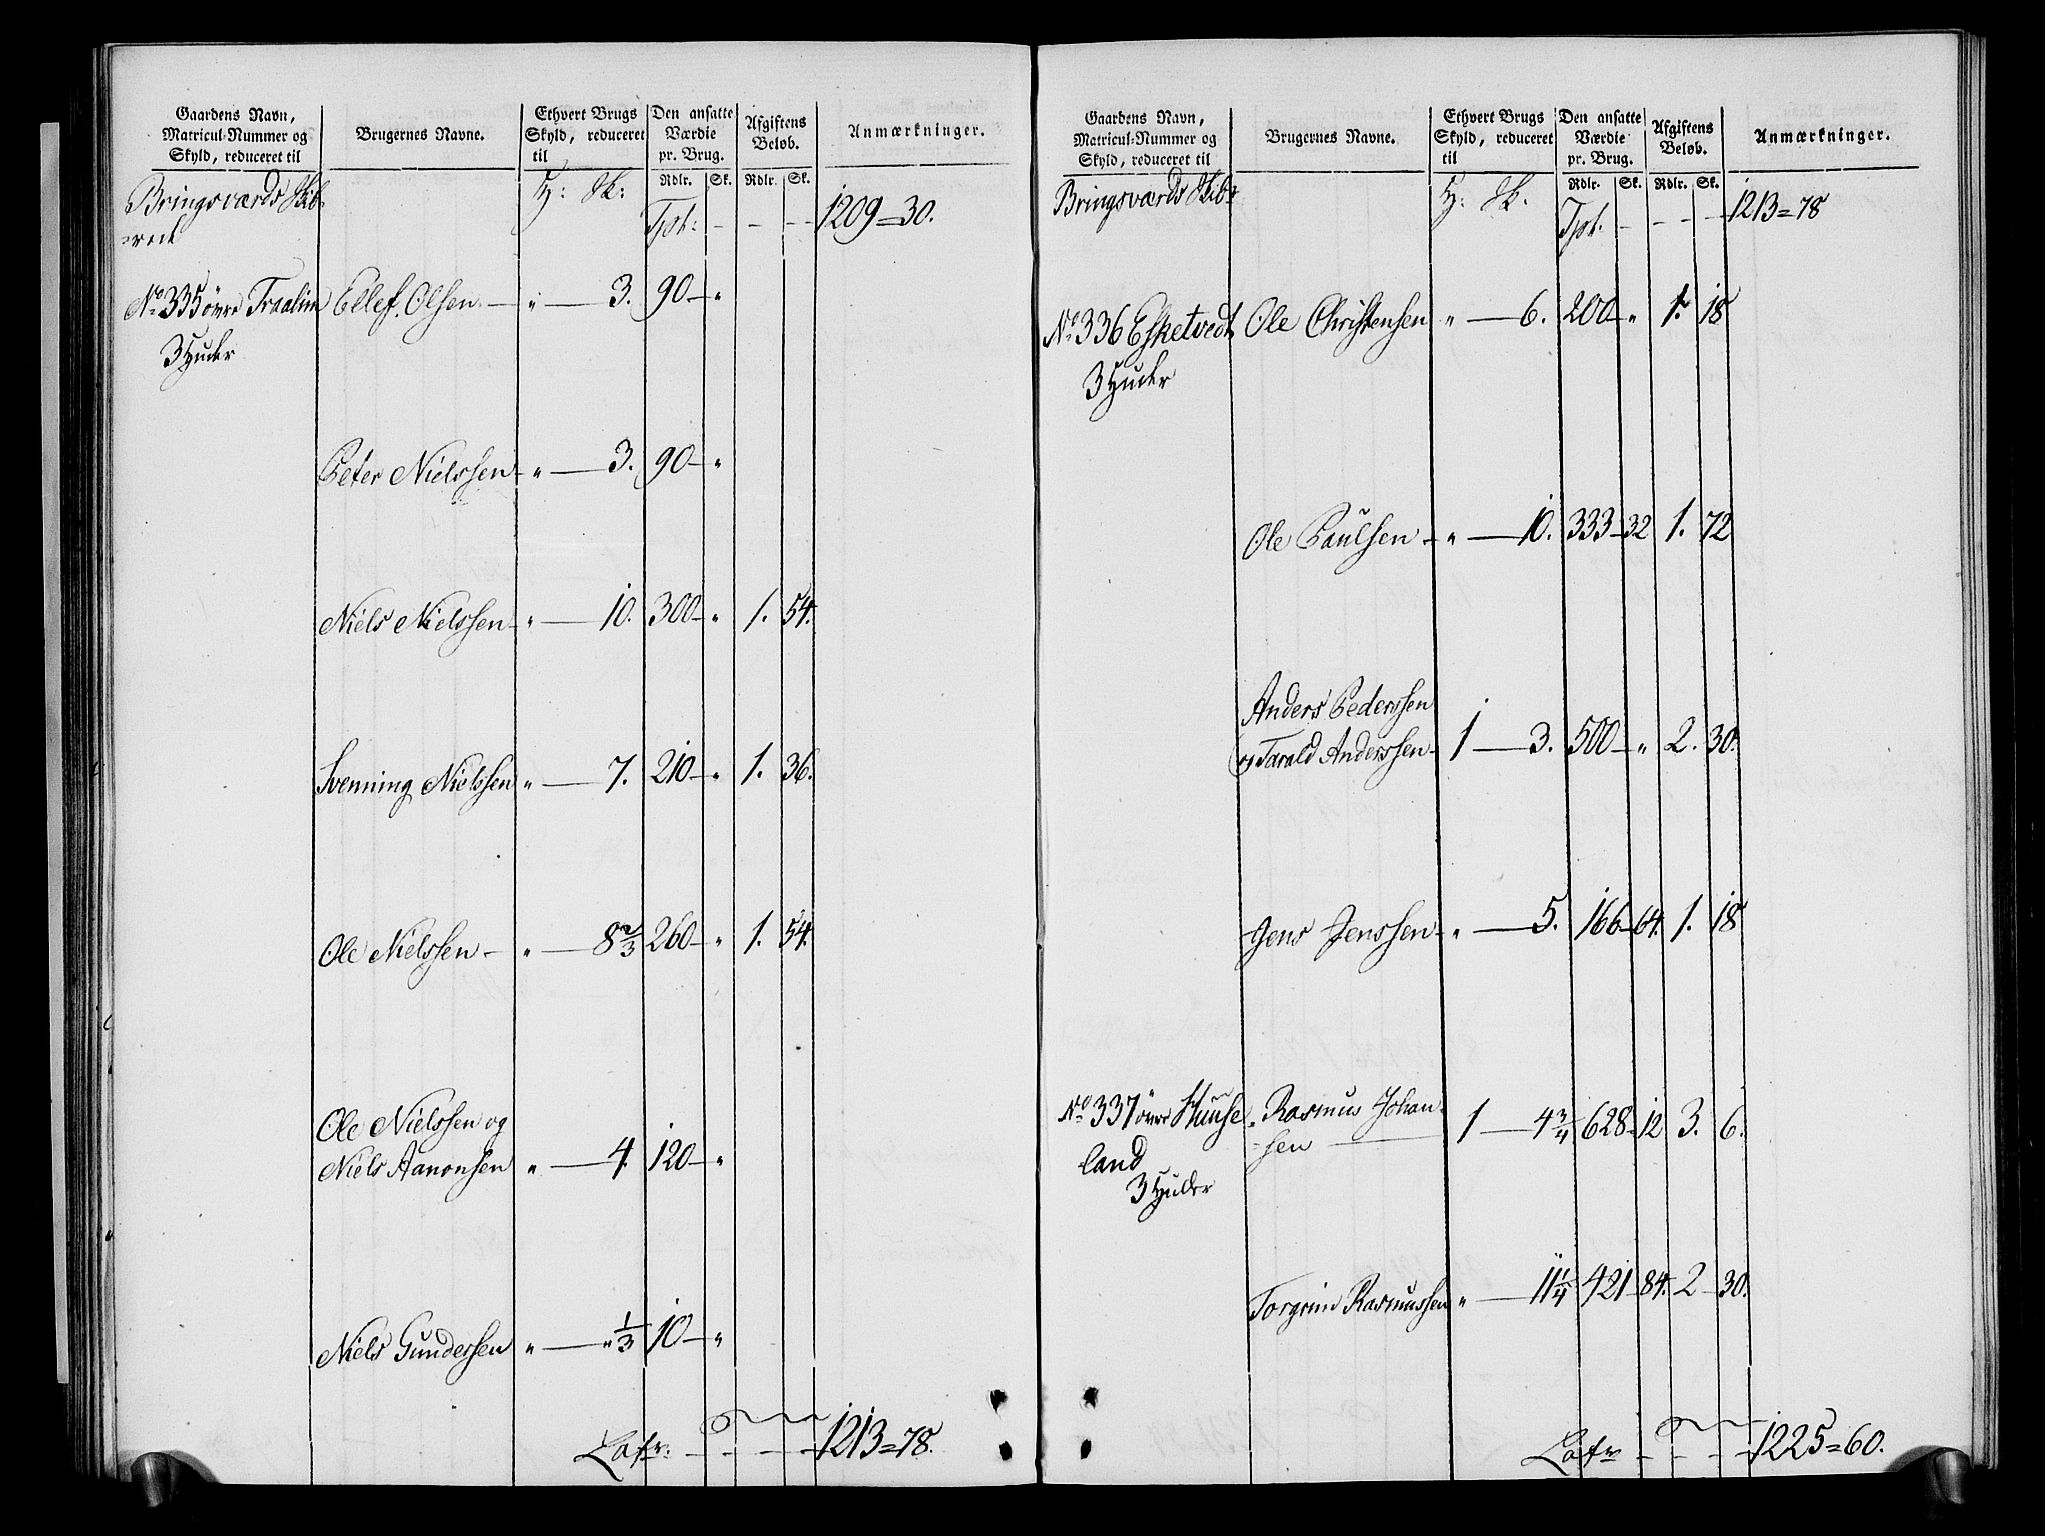 Gaardens Navn,
Matricul-Nummer og
Skyld, reduceret til
Brugernes Navne.
Ethvert Brugs
Skyld, reduceret
til
Den ansatte
Værdie
pr. Brug.
Rdlr. Sk.
Afgiftens
Beløb.
Rdlr. Sk.
Anmærkninger.
Bringsværds Skib-
=rede
H: Sk:
Tpt: - - - - 1209=30.
No 335 øvre Traalim Ellef Olsen - " - 3. 90 - "
3 Huder
Peter Nielssen - " - 3. 90 - "
Niels Nielssen - " - 10. 300 - " 1. 54.
Svenning Nielssen " - 7. 210 - " 1. 36.
Ole Nielssen - " - 8 2/3 260 - " 1. 54.
Ole Nielssen og
Niels Aanonsen " - 4. 120 - "
Niels Gundersen " - " 1/3 10 - "
Lat: - - - - 1213=78.
Gaardens Navn,
Matricul-Nummer og
Skyld, reduceret til
Brugernes Navne.
Ethvert Brugs
Skyld, reduceret
til
Den ansatte
Værdie
pr. Brug.
Rdlr. Sk.
Afgiftens
Beløb.
Rdlr. Sk.
Anmærkninger.
Bringsværds Skib=
H: Sk.
Tpt. - - - - 1213=78
No 336 Esketvedt Ole Christensen " - 6. 200 - " 1. 18
3 Huder
Ole Paulsen - " - 10. 333 - 32 1. 72
Anders Pederssen
og Tarald Anderssen - 1 - 3. 500 - " 2. 30.
Jens Jenssen - " - 5. 166 - 64. 1. 18
No 337 øvre Stuuse= Rasmus Johan- 1 - 4 3/4 628 - 12 3. 6.
land =sen
3 Huder
Torgrim Rasmussen " - 11 1/4 421 - 84. 2 - 30.
Lat - - - 1225=60.